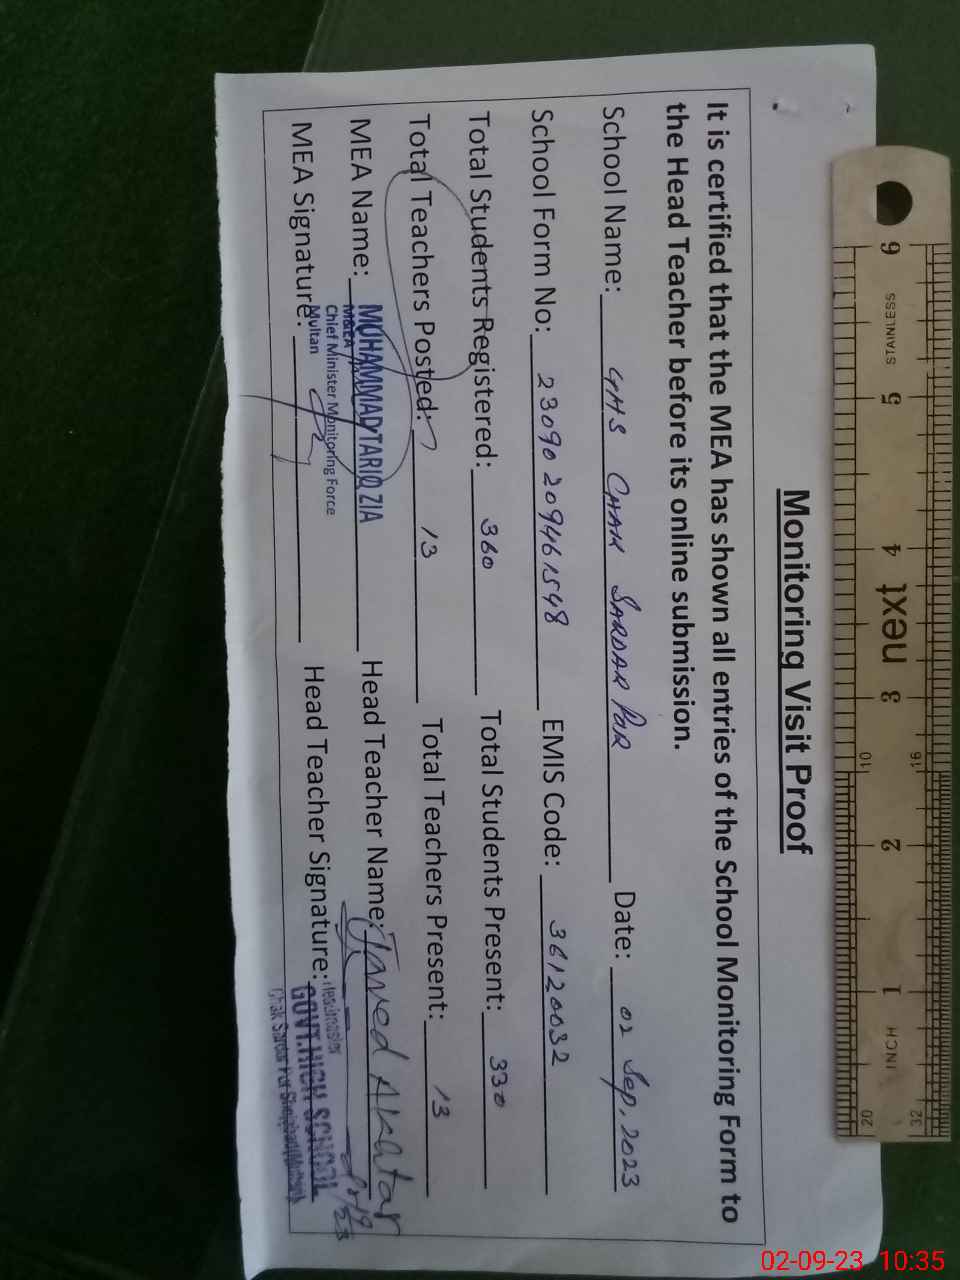 Monitoring Visit Proof
It is certified that the MEA has shown all entries of the School Monitoring Form to
the Head Teacher before its online submission.
School Name: GHS CHAK SARDAR PUR Date: 02 Sep, 2023
School Form No: 2309020946 1548 EMIS Code: 36120032
Total Students Registered: 360 Total Students Present: 330
Total Teachers Posted: 13 Total Teachers Present: 13
MEA Name: MUHAMMAD TARIQ ZIA Head Teacher Name: Javed Akhtar
M&EA
Chief Minister Monitoring Force
Multan
MEA Signature: Head Teacher Signature:
Headmaster
GOVT. HIGH SCHOOL
Chak Sardar Pur
6 5 4 3 2 1 INCH
STAINLESS
next
10 20
16 32
02-09-23 10:35